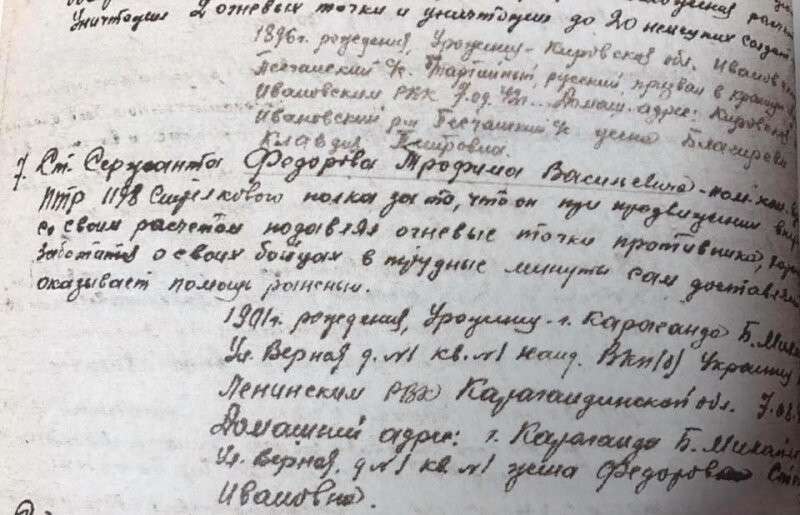 Уничтожил 2 огневых точки и уничтожил до 20 немецких солдат
1896г. рождения, Урожениц - Кировская обл. Ивановский
Песчаский с/с. Партийный, русский, призван в кр.
Ивановским РВК 7.08.42г. Домаш. адрес: Кировская
Ивановский р-н Песчаский с/с жена
Клавдия Петровна.
7. Ст. Сержанта Федорова Трофима Васильевича - пом. ком. вз.
ПТР 1198 Стрелкового полка за то, что он при продвижении впер
со своим расчетом подавлял огневые точки противника,
заботится о своих бойцах в трудные минуты сам доставлял
оказывает помощь раненым.
1901г. рождения, Урожениц - г. Караганда Б. Миха
Ул. Верная д. №1 кв. №1 канд. ВКП(б) Украинец
Ленинским РВК Карагандинской обл. 7.08.
Домашний адрес: г. Караганда Б. Михай
Ул. Верная, д №1 кв. №1 жена Федорова
Ивановна.